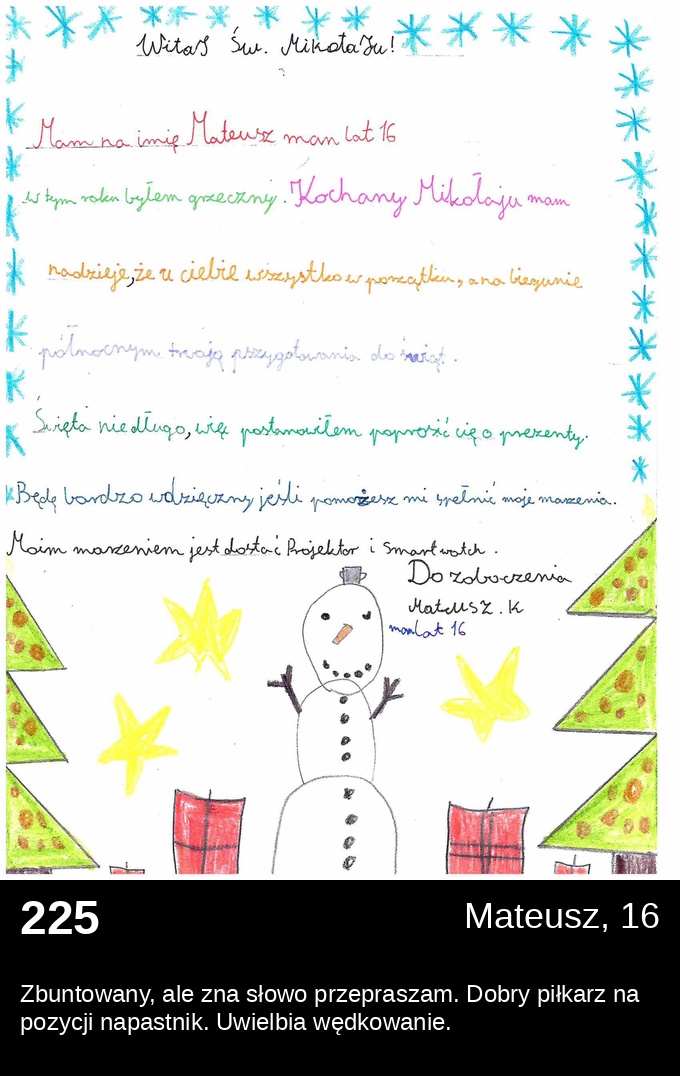 WitaJ Św. MikołaJu!
Mam na imię Mateusz man lat 16
w tym roku byłem grzeczny. Kochany Mikołaju mam
nadzieję, że u ciebie wszystko w porządku, a na biegunie
północnym trwają pszygotowania do świąt.
Święta nie długo, więc postanowiłem poprosić cię o prezenty.
Będę bardzo wdzięczny jeśli pomożesz mi spełnić moje marzenia.
Moim marzeniem jest dostać Projektor i Smartwatch.
Do zoboczenia
MateUSZ. K
man lat 16
225
Mateusz, 16
Zbuntowany, ale zna słowo przepraszam. Dobry piłkarz na
pozycji napastnik. Uwielbia wędkowanie.